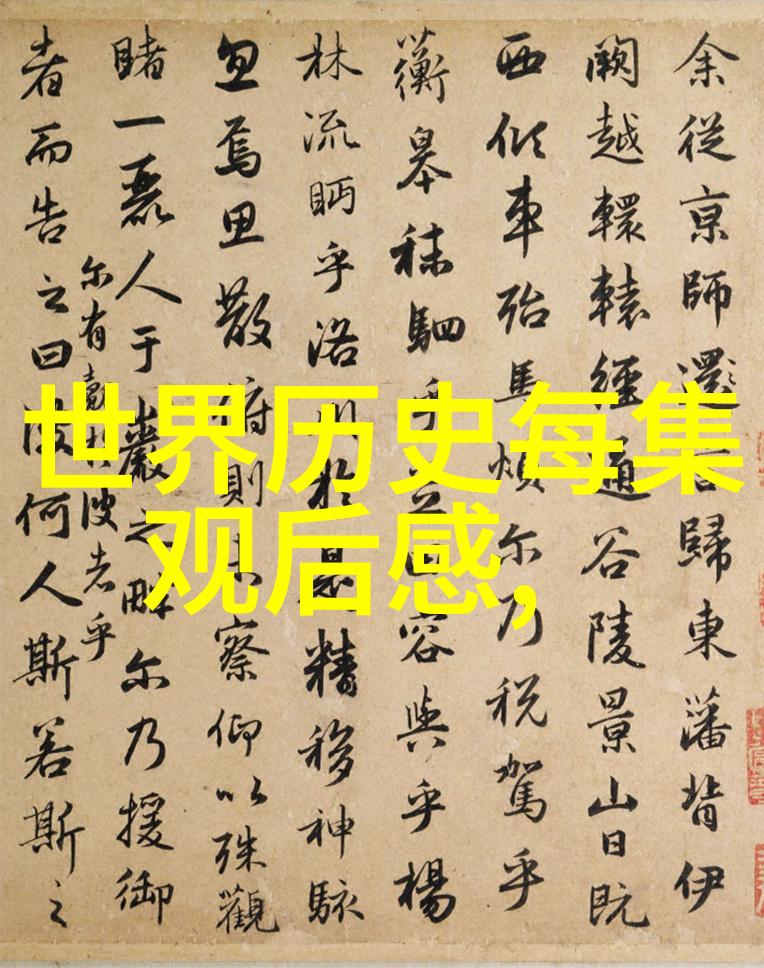 世界历史每集
观后感,
余從京師還言歸東藩背伊
闕越轘轅經通谷陵景山日既
西傾車殆馬煩尔乃税駕乎
蘅皋秣駟乎芝田容與乎楊
林流眄乎洛川於是精移神駭
忽焉思散俯則未察仰以殊觀
睹一麗人于巖之畔尔乃援御
者而告之曰
尔有覿於彼者乎
彼何人斯若斯之